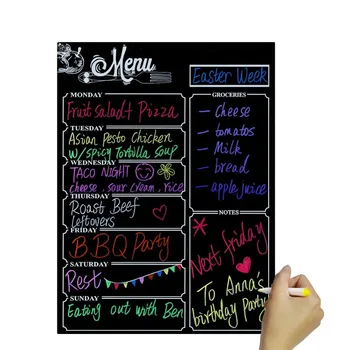 Menu
Easter Week
MONDAY
Fruit salad + Pizza
TUESDAY
Asian Pesto Chicken
w/ spicy Tortilla soup
WEDNESDAY
TACO NIGHT
cheese, sour cream, rice
THURSDAY
Roast Beef
leftovers
FRIDAY
BBQ Party
SATURDAY
Rest
SUNDAY
Eating out with Ben
GROCERIES
- Cheese
- tomatos
- Milk
- bread
- apple juice
NOTES
Next friday
To Anna's
birthday Party